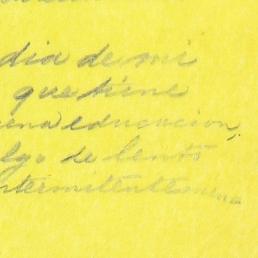 dia de mi
que tiene
ena educacion,
lgo de lento
ntermitenteme